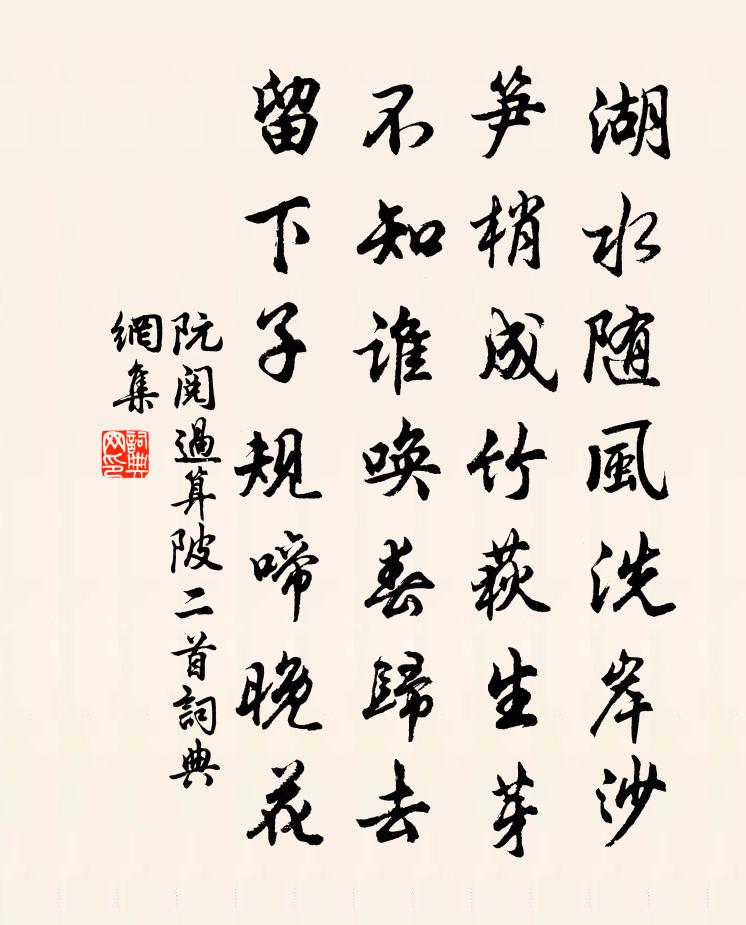 湖水随風洗岸沙
笋梢成竹荻生芽
不知谁唤春歸去
留下子規啼晚花
阮閱過算陂二首詞典
網集
詞典
网印